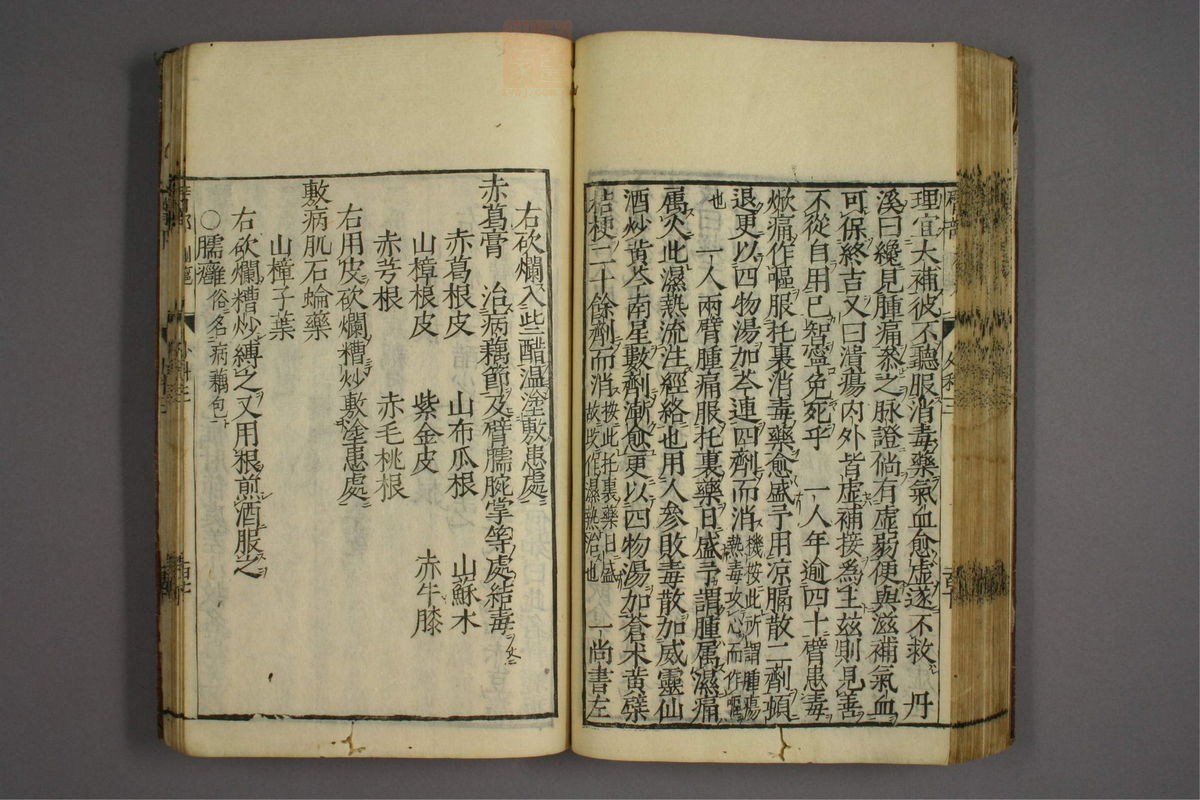 理宜大補彼不聽服消毒藥氣血愈虛遂不救 丹
溪曰纔見腫痛參之脉證倘有虛弱便與滋補氣血
可保終吉又曰潰瘍内外皆虛補接爲主玆則見善
不從自用己智寧免死乎 一人年逾四十臂患毒
焮痛作嘔服托裏消毒藥愈盛予用凉膈散二劑頓
退更以四物湯加芩連四劑而消 機按此所謂腫瘍
熱毒攻心而作嘔
也 一人兩臂腫痛服托裏藥日盛予謂腫属濕痛
属火此濕熱流注經絡也用人參敗毒散加威靈仙
酒炒黄芩南星數劑漸愈更以四物湯加蒼朮黄蘗
桔梗二十餘劑而消 按此托裏藥日盛
故改作濕熱治也 一尚書左
右砍爛入些醋温塗敷患處
赤葛膏 治病藕節及臂臑腕掌等處結毒
赤葛根皮 山布瓜根 山蘇木
山樟根皮 紫金皮 赤牛膝
赤芳根 赤毛桃根
右用皮砍爛糟炒敷塗患處
敷病肌石蝓藥
山樟子葉
右砍爛糟炒縛之又用根煎酒服之
○臑癰 俗名病藕包